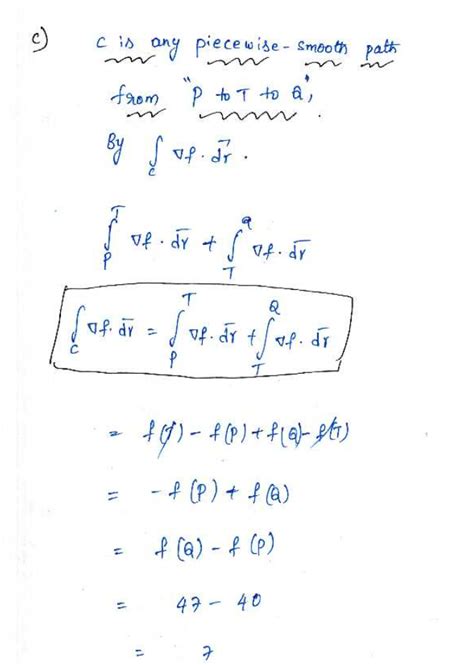 c) C is any piecewise-smooth path
from "P to T to Q",
By ∫_C ∇f · d\vec{r} .
∫_P^T ∇f · d\vec{r} + ∫_T^Q ∇f · d\vec{r}
∫_C ∇f · d\vec{r} = ∫_P^T ∇f · d\vec{r} + ∫_T^Q ∇f · d\vec{r}
= f(T) - f(P) + f(Q) - f(T)
= -f(P) + f(Q)
= f(Q) - f(P)
= 47 - 40
= 7